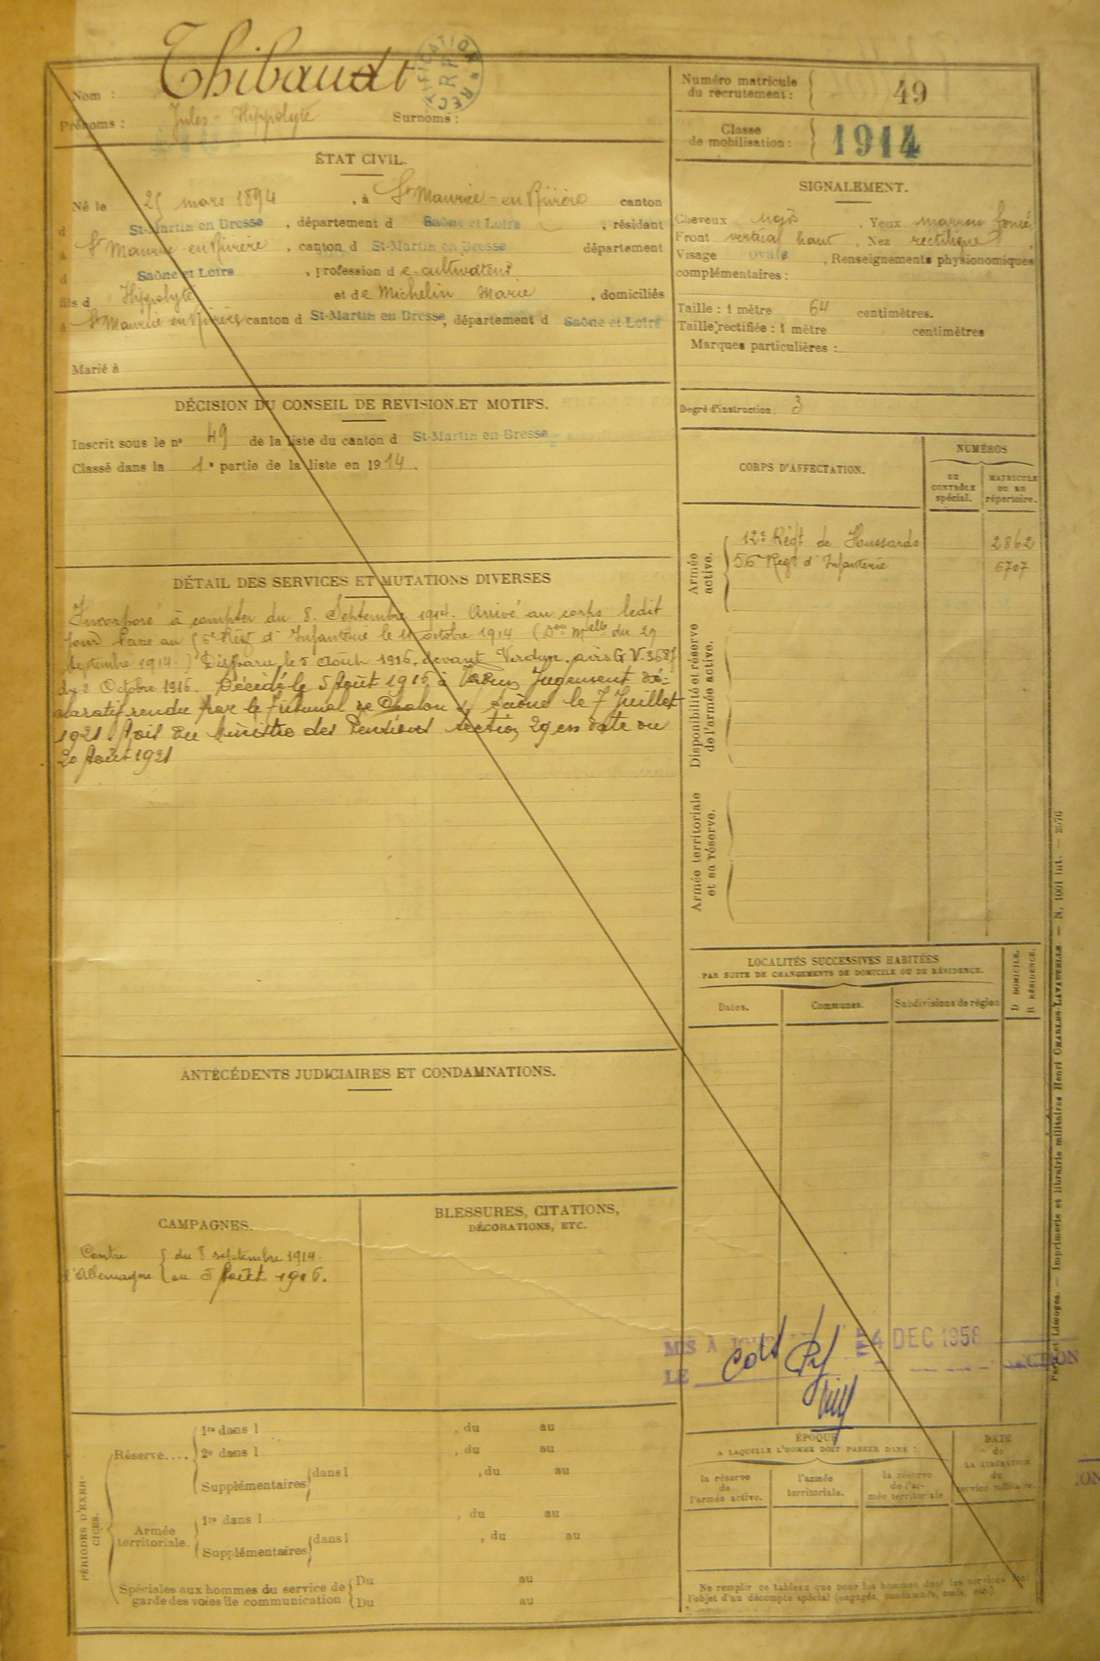 Nom : Thibaudt
Prénoms : Jules - Hippolyte Surnoms :
RECTIFICATION
Numéro matricule du recrutement : 49
Classe de mobilisation : 1914
ÉTAT CIVIL.
Né le 25 mars 1894, à St Maurice-en-Rivière canton
d St-Martin en Bresse, département d Saône et Loire, résidant
à St Maurice en Rivière, canton d St-Martin en Bresse département
d Saône et Loire, profession de cultivateur
fils d Hippolyte et de Michelin Marie, domiciliés
à St Maurice en Rivière canton d St-Martin en Bresse, département d Saône et Loire
Marié à
SIGNALEMENT.
Cheveux noirs. Yeux marron foncé
Front vertical haut, Nez rectiligne,
Visage ovale, Renseignements physionomiques
complémentaires :
Taille : 1 mètre 64 centimètres.
Taille rectifiée : 1 mètre centimètres
Marques particulières :
Degré d'instruction 3
DÉCISION DU CONSEIL DE REVISION ET MOTIFS.
Inscrit sous le n° 49 de la liste du canton d St-Martin en Bresse
Classé dans la 1e partie de la liste en 1914.
CORPS D'AFFECTATION.
NUMÉROS
DU CONTRÔLE spécial.
MATRICULE OU AU répertoire.
Armée active.
12e Régt de Houssards 2862
56e Régt d'Infanterie 6707
Disponibilité et réserve de l'armée active.
Armée territoriale et sa réserve.
DÉTAIL DES SERVICES ET MUTATIONS DIVERSES
Incorporé à compter du 8 Septembre 1914. Arrivé au corps ledit
jour Passé au 56e Régt d'Infanterie le 11 octobre 1914 (Don Melle du 29
Septembre 1914.) Disparu le 5 Août 1916, devant Verdun. avis G V. 3687
du 2 Octobre 1916. Décédé le 5 Août 1916 à Verdun Jugement dé-
claratif rendu par le Tribunal de Chalon s/ Saône le 7 Juillet
1921. Avis du Ministre des Pensions section 29 en date du
20 Août 1921
LOCALITÉS SUCCESSIVES HABITÉES
PAR SUITE DE CHANGEMENTS DE DOMICILE OU DE RÉSIDENCE.
Dates. Communes. Subdivisions de région D DOMICILE. R RÉSIDENCE.
ANTÉCÉDENTS JUDICIAIRES ET CONDAMNATIONS.
CAMPAGNES.
Contre l'Allemagne { du 8 septembre 1914.
au 5 Août 1916.
BLESSURES, CITATIONS,
DÉCORATIONS, ETC.
MIS À JOUR
LE
4 DEC 1958
PÉRIODES D'EXERCICES.
Réserve.... 1re dans l , du au
2e dans l , du au
Supplémentaires dans l , du au
Armée territoriale. 1re dans l , du au
Supplémentaires dans l , du au
Spéciales aux hommes du service de garde des voies de communication Du au
Du au
ÉPOQUE
A LAQUELLE L'HOMME DOIT PASSER DANS :
la réserve de l'armée active.
l'armée territoriale.
la réserve de l'armée territoriale
DATE de LA LIBÉRATION du service militaire.
Ne remplir ce tableau que pour les hommes dont les services font
l'objet d'un décompte spécial (engagés, condamnés, omis, etc.)
Paris et Limoges. — Imprimerie et librairie militaires Henri CHARLES-LAVAUZELLE. — N. 1001 int. — 2576